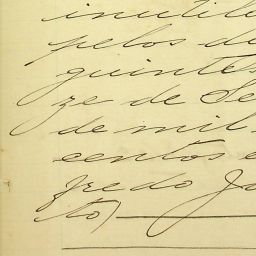 inutil
pelos d
guintes
ze de Se
de mil
centos e
fredo Jo
to)